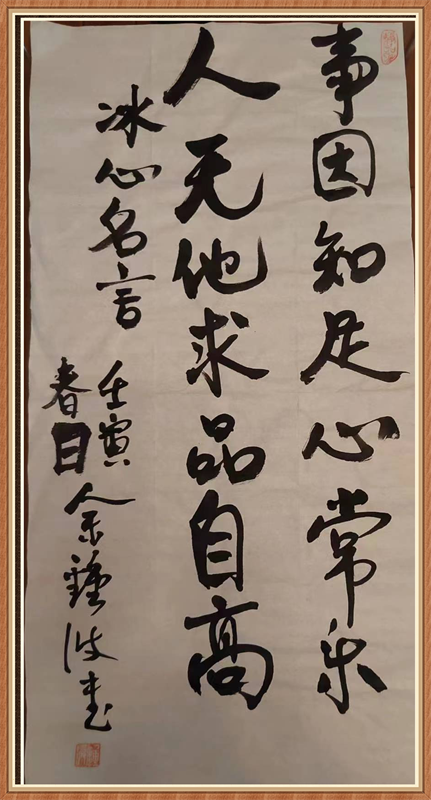 事因知足心常乐
人无他求品自高
冰心名言
壬寅
春日
余波书